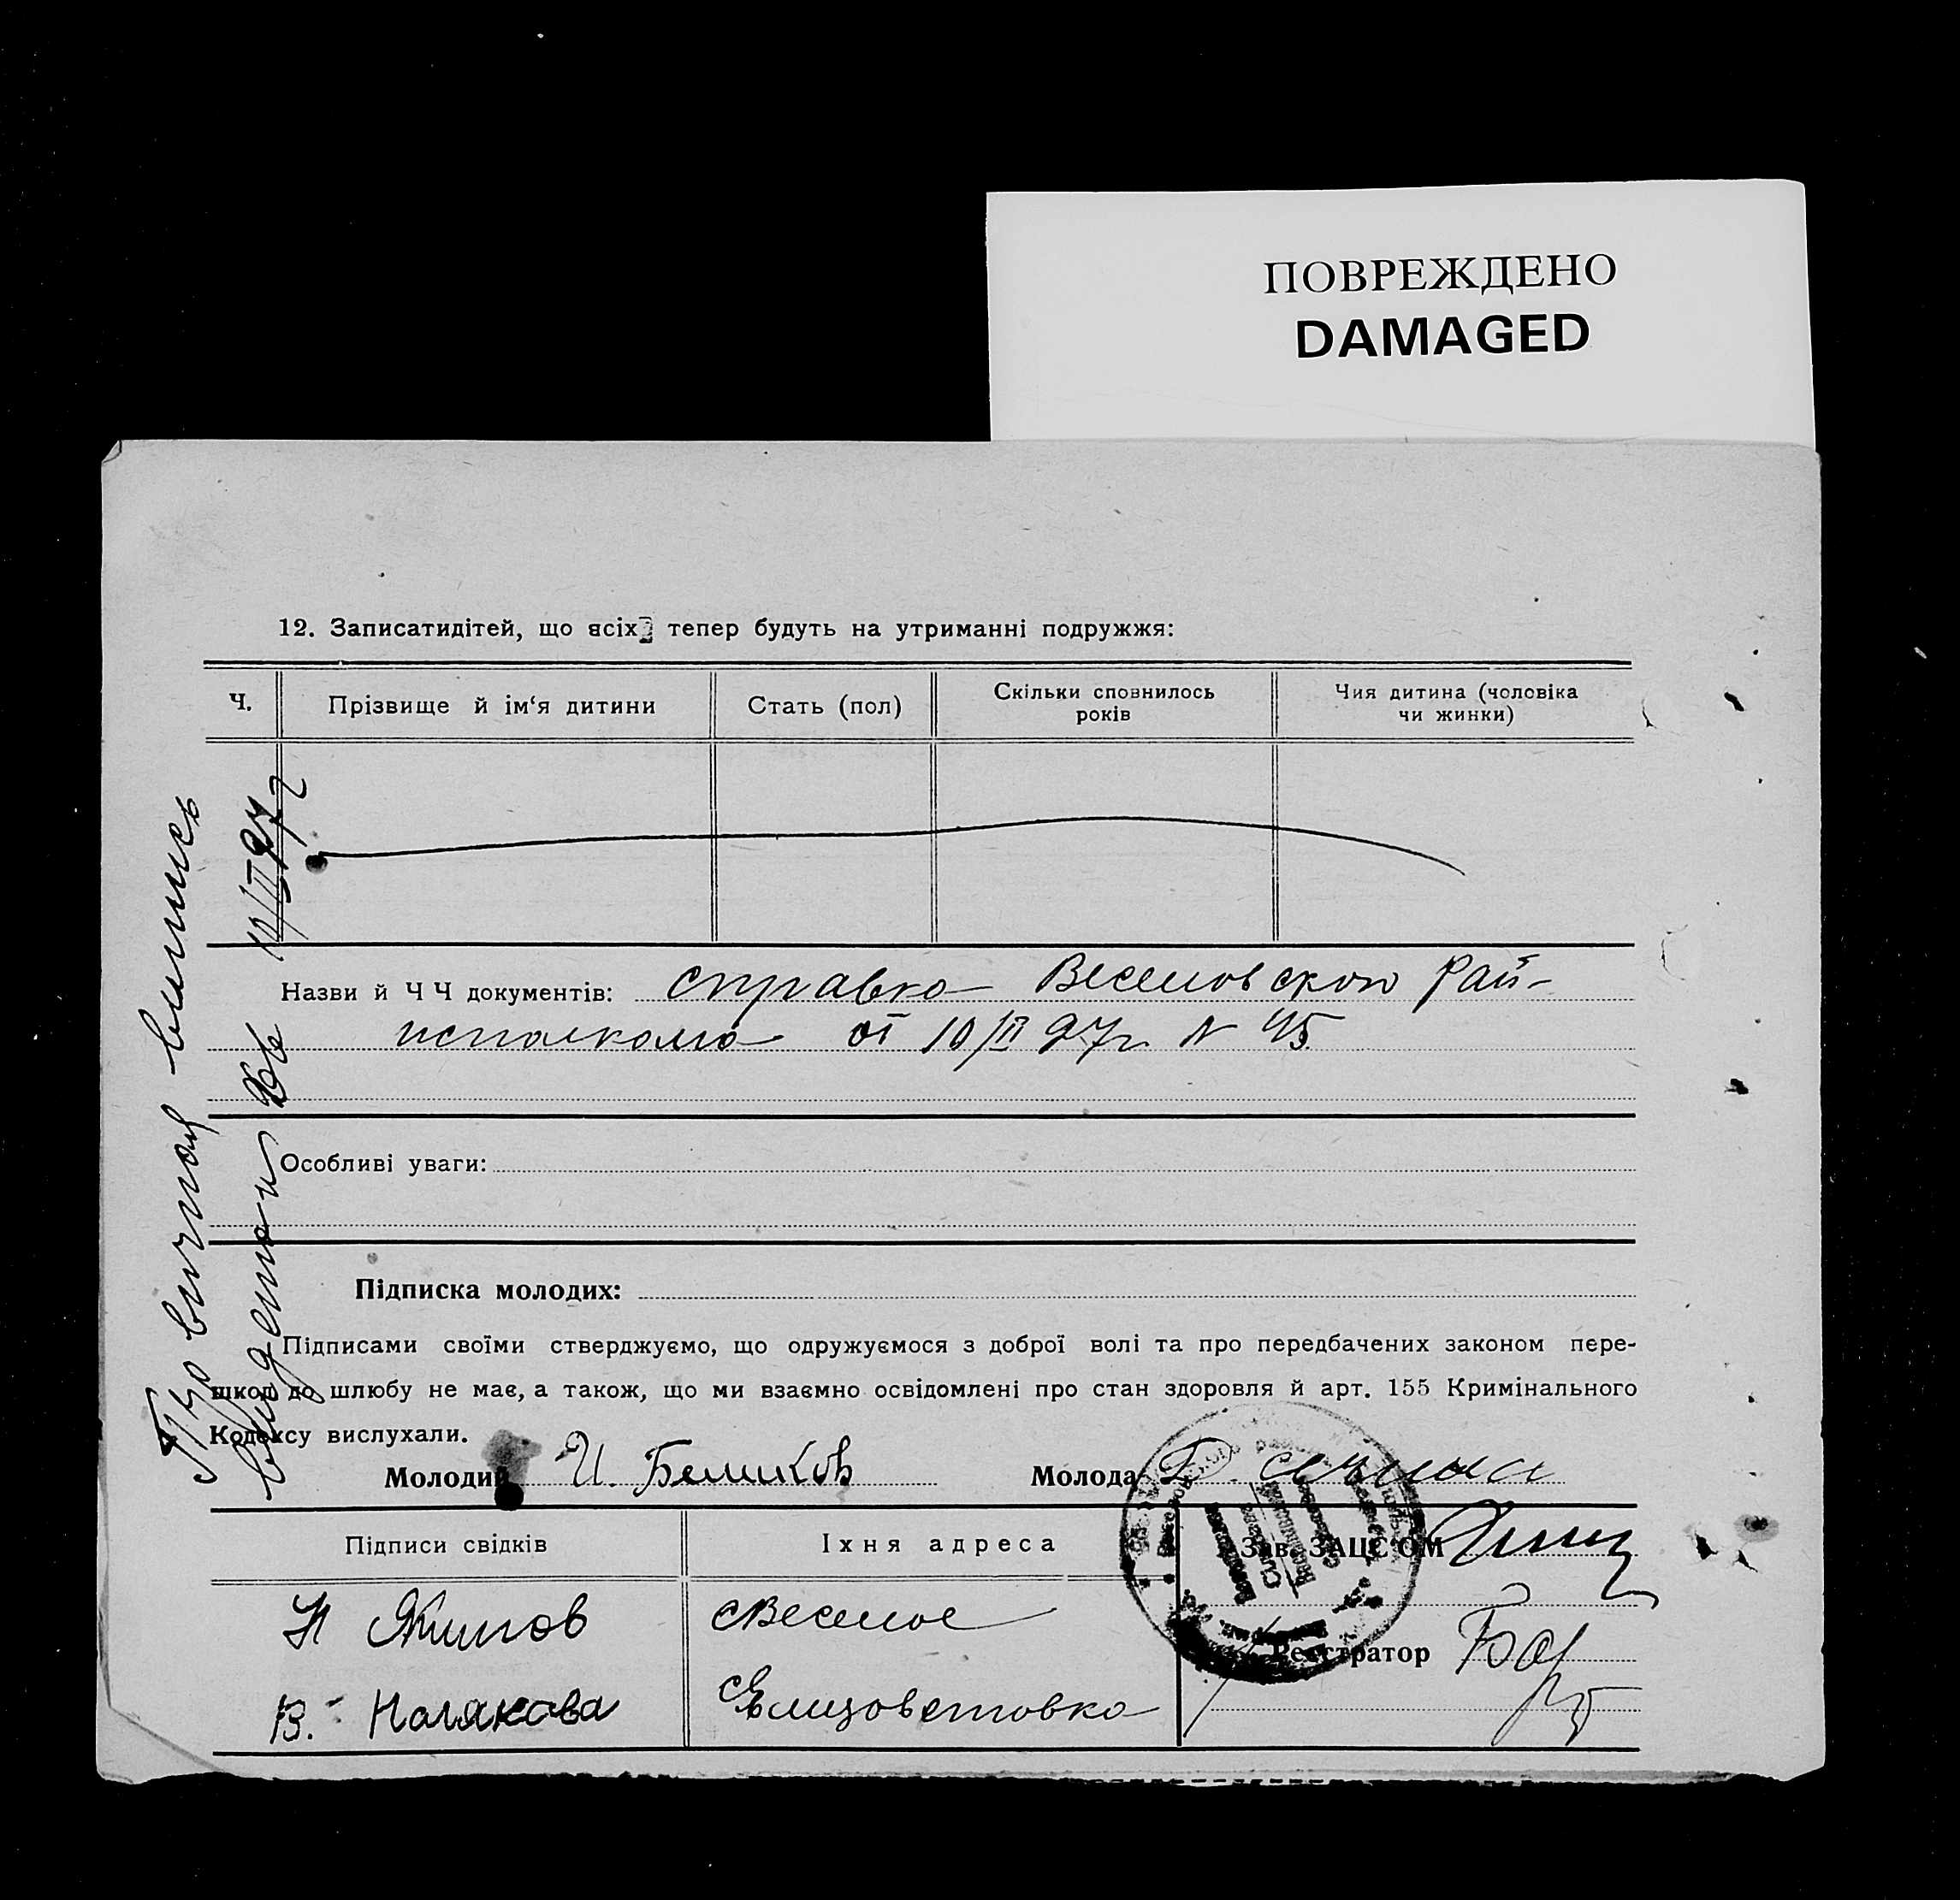 ПОВРЕЖДЕНО
DAMAGED
12. Записатидітей, що всіх тепер будуть на утриманні подружжя:
Ч.
Прізвище й ім‘я дитини
Стать (пол)
Скільки сповнилось
років
Чия дитина (чоловіка
чи жинки)
Назви й Ч Ч документів: справка Веселовского Рай-
исполкома от 10/II 27г. N 45
Особливі уваги:
Підписка молодих:
Підписами своїми стверджуємо, що одружуємося з доброї волі та про передбачених законом пере-
шкод до шлюбу не має, а також, що ми взаємно освідомлені про стан здоровля й арт. 155 Кримінального
Кодексу вислухали.
Молодий И. Беликов Молода
Підписи свідків
Іхня адреса
Зав. ЗАЦС‘ОМ
с Веселое
В. Полякова
с Елизоветовка
Реєстратор
Первичная выпись
выдана
10/II 27 г